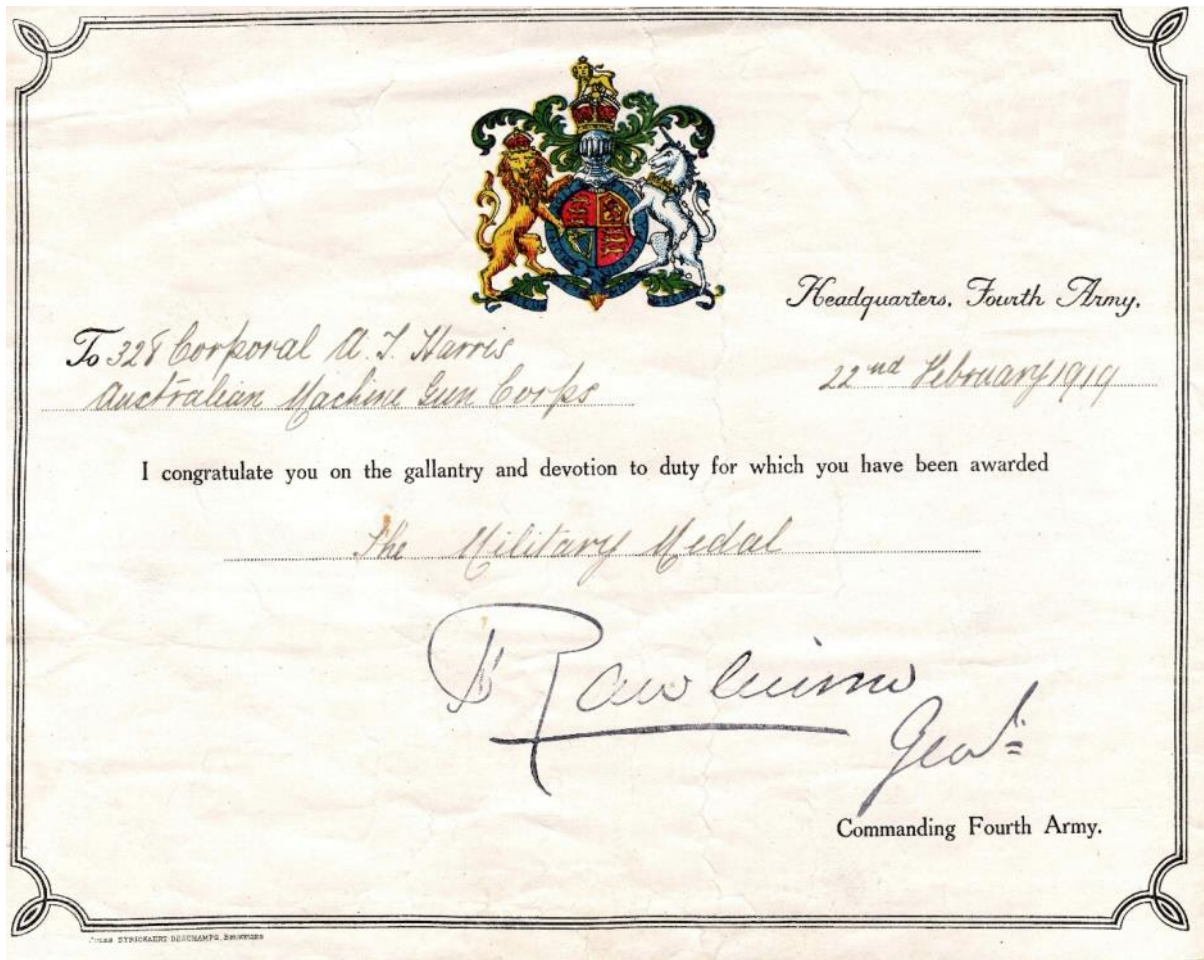 Headquarters, Fourth Army.
To 328 Corporal A. T. Harris
Australian Machine Gun Corps
22nd February 1919
I congratulate you on the gallantry and devotion to duty for which you have been awarded
The Military Medal
H Rawlinson
Genl.
Commanding Fourth Army.
STRICKAERT-DESCHAMPS,